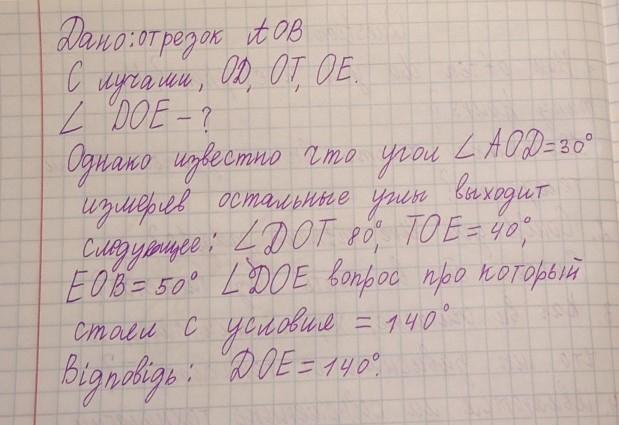 Дано: отрезок АОВ
С лучами, OD, OT, OE.
∠ DOE - ?
Однако известно что угол ∠AOD=30°
измеряв остальные углы выходит
следующее: ∠DOT 80°, TOE = 40°,
EOB = 50° ∠DOE вопрос про который
стоял с условия = 140°
Відповідь: DOE = 140°.